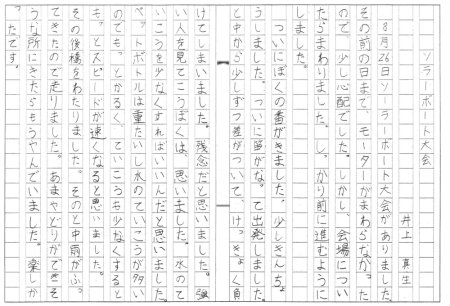 ソーラーボート大会
井上 真生
8月26日ソーラーボート大会がありました。
その前の日まで、モーターがまわらなかった
ので、少し心配でした。しかし、会場につい
たらまわりました。しっかり前に進むように
しました。
ついにぼくの番がきました。少しきんちょ
うしました。ついに笛がなって出発しました。
と中から少しずつ差がついて、けっきょく負
けてしまいました。残念だと思いました。強
い人を見てこうぼくは、思いました。水のて
いこうを少なくすればいいんだと思いました。
ペットボトルは重たいし水のていこうが多い
のでもっとかるく、ていこうも少なくすると
もっとスピードが速くなると思いました。
その後橋をわたりました。そのと中雨がふっ
てきたので走りました。あまやどりができそ
うな所にきたらもうやんでいました。楽しか
ったです。